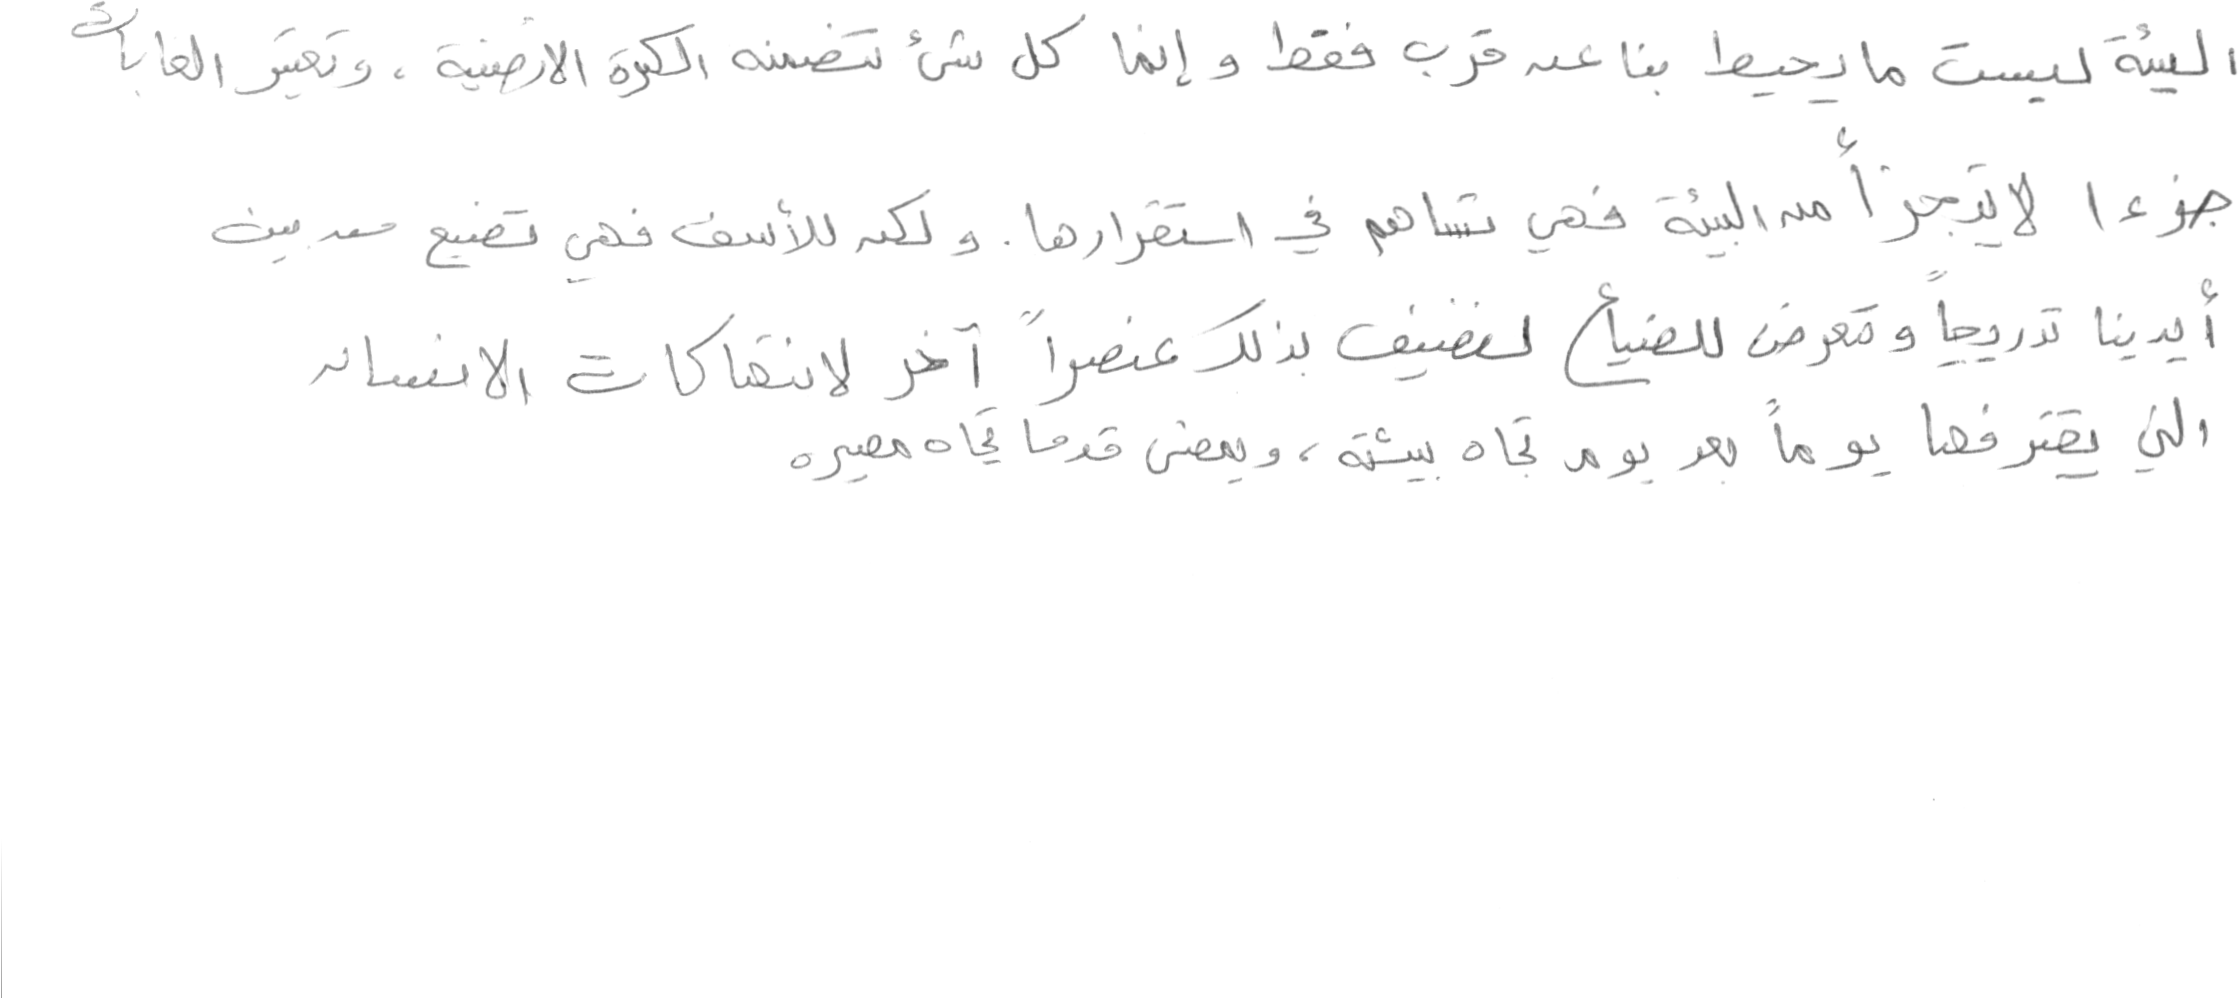 البيئة ليست ما يحيط بنا عن قرب فقط وإنما كل شئ تتضمنه الكرة الارضية ، وتعتبر الغابات
جزءا لا يتجزأ من البيئة فهي تساهم في استقرارها . ولكن للأسف فهي تضيع من بين
أيدينا تدريجياً وتتعرض للضياع لنضيف بذلك عنصراً آخر لانتهاكات الانسان
التي يقترفها يوماً بعد يوم تجاه بيئته ، ويمضى قدما تجاه مصيره